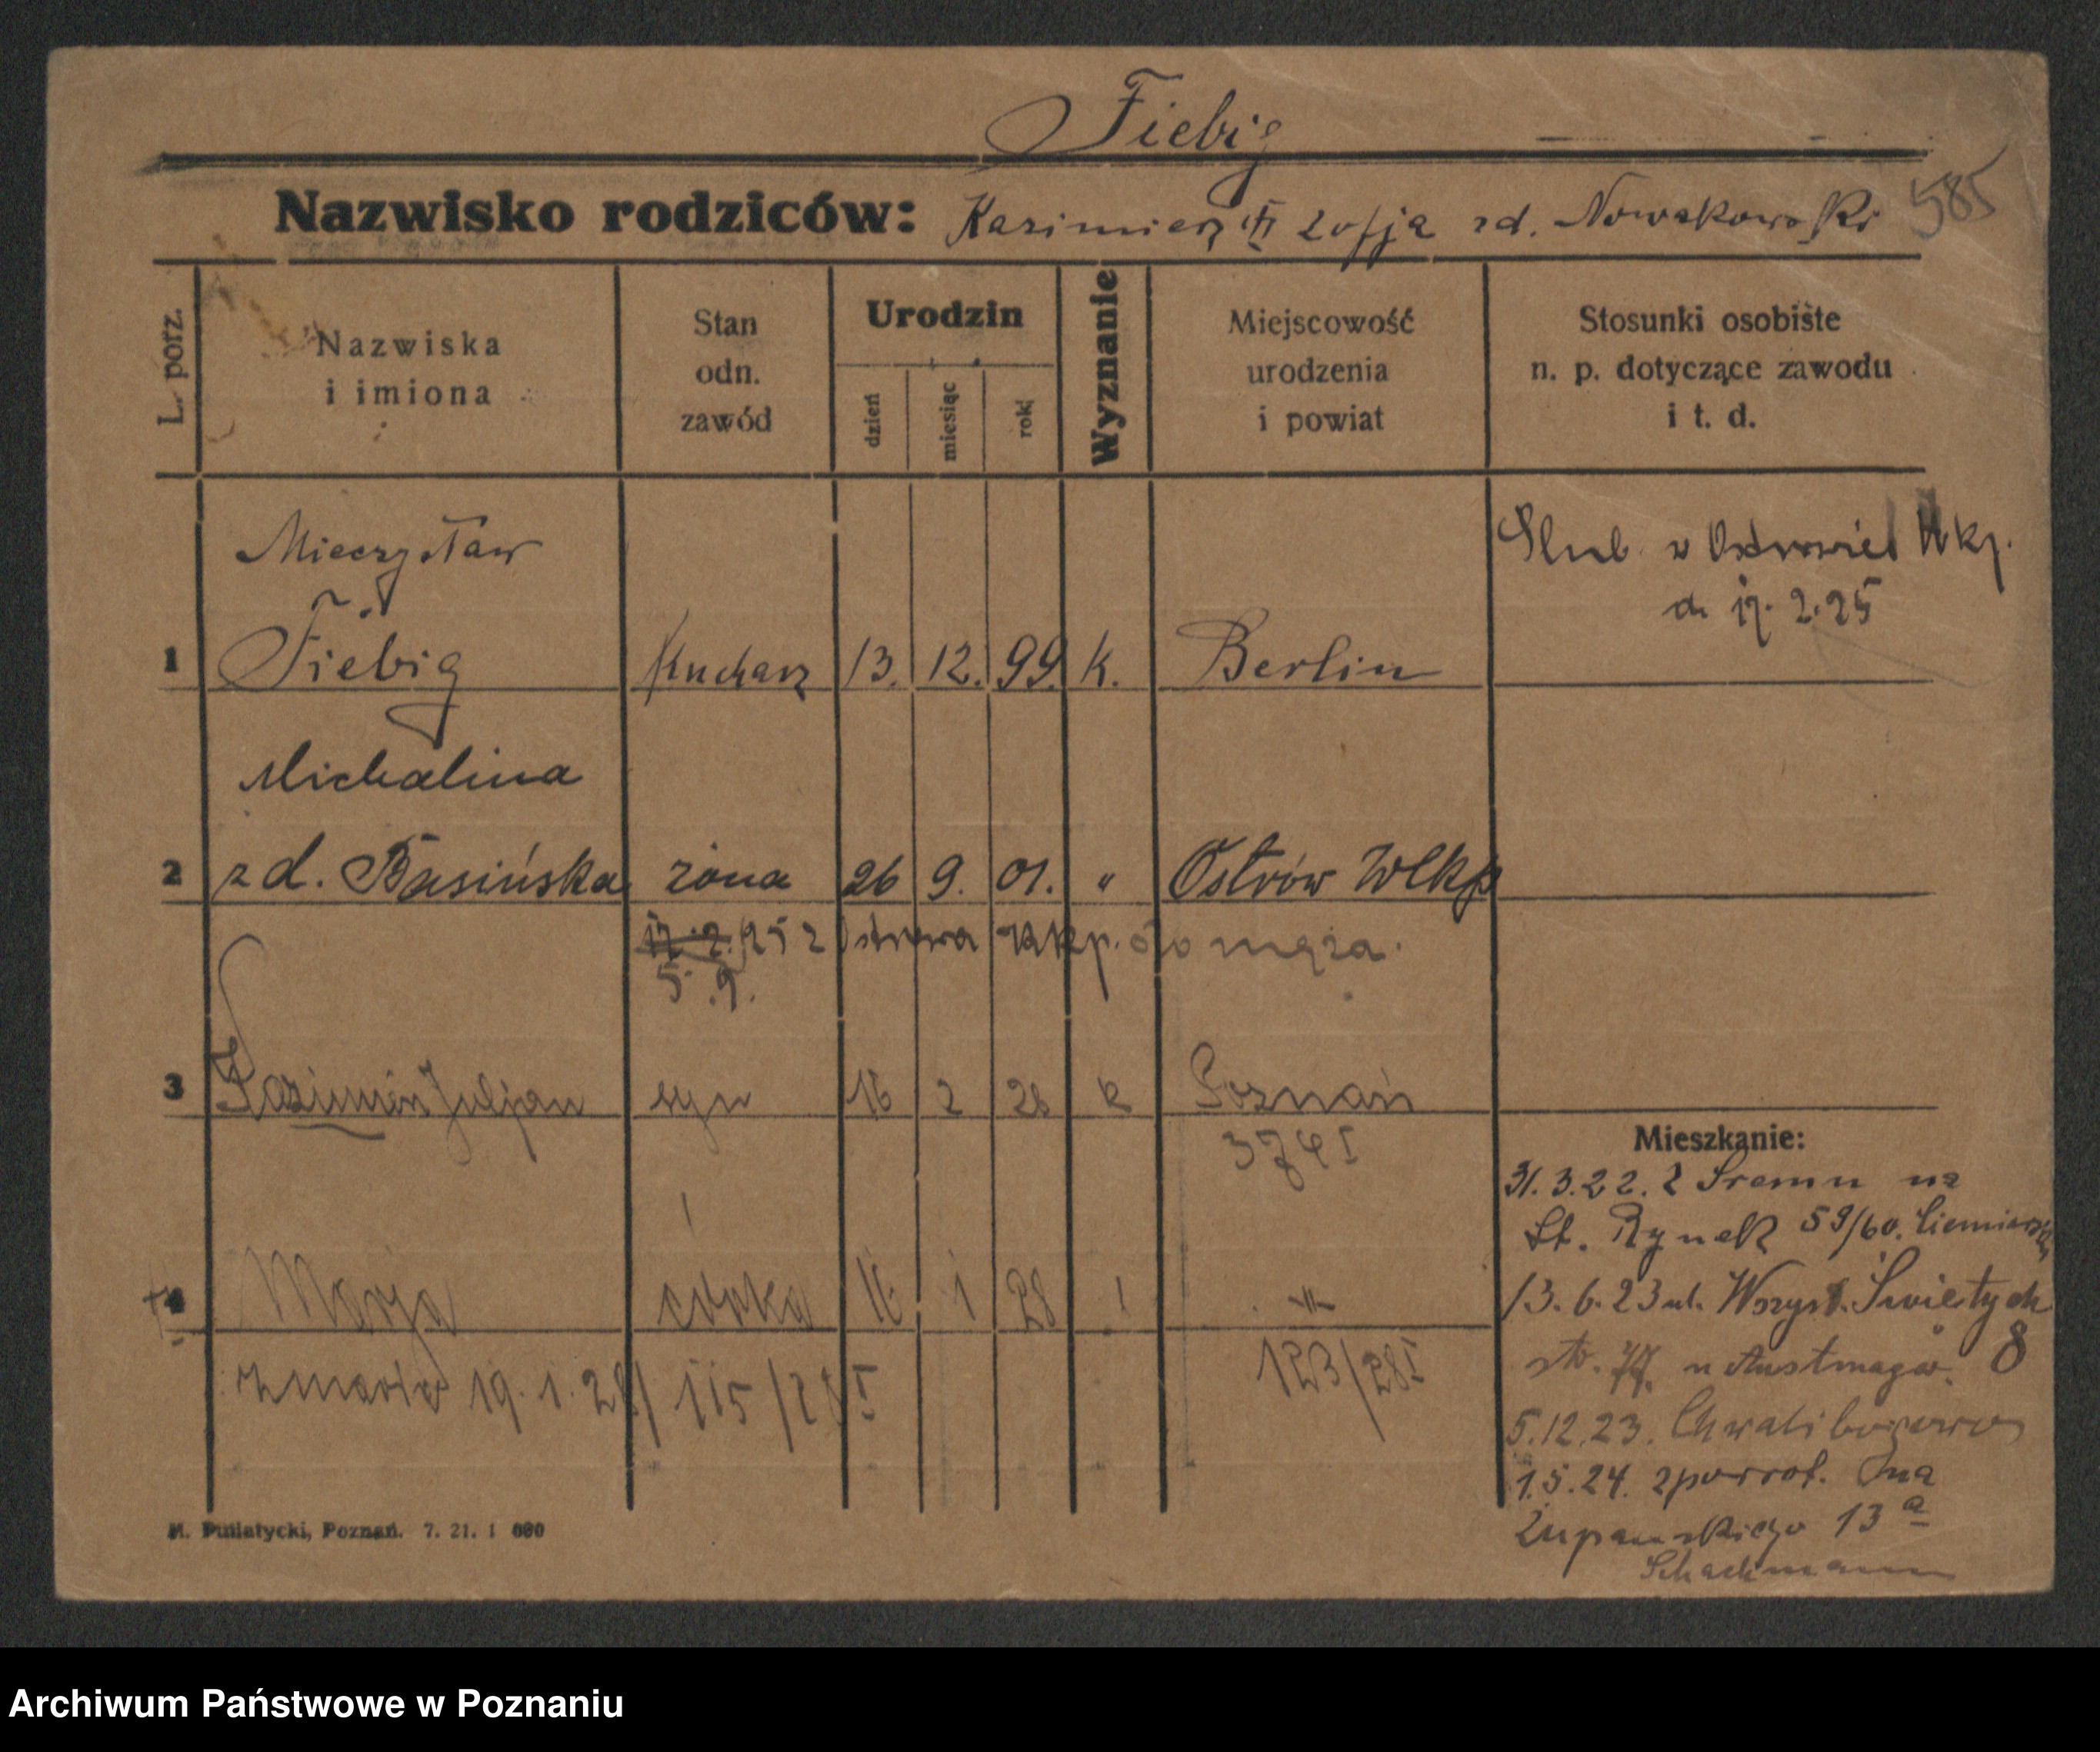 Fiebig
Nazwisko rodziców: Kazimierz i Zofja zd. Nowakowski 585
L. porz.
Nazwiska
i imiona
Stan
odn.
zawód
Urodzin
dzień
miesiąc
rok
Wyznanie
Miejscowość
urodzenia
i powiat
Stosunki osobiste
n. p. dotyczące zawodu
i t. d.
Mieczysław
Ślub w Ostrowie Wlkp.
d. 17. 2. 25
1 Fiebig Kucharz 13. 12. 99. k. Berlin
Michalina
2 zd. Basińska żona 26 9. 01. " Ostrów Wlkp
17. 2. 25 z Ostrowa Wlkp. do męża.
5. 9.
3 Kazimierz Juljan syn 16 2 26 k Poznań
3741
Mieszkanie:
31. 3. 22. z Śremu na
St. Rynek 59/60.
4 Marja córka 16 1 28 " "
13. 6. 23 ul. Wszyst. Świętych
zmarła 19. 1. 28/ 115/28 I
123/28 I
u 8
5. 12. 23. Chwalibogowo
1. 5. 24. zpowrot. na
Żupańskiego 13 a
Schachmann
M. Putiatycki, Poznań. 7. 21. 1 000
Archiwum Państwowe w Poznaniu